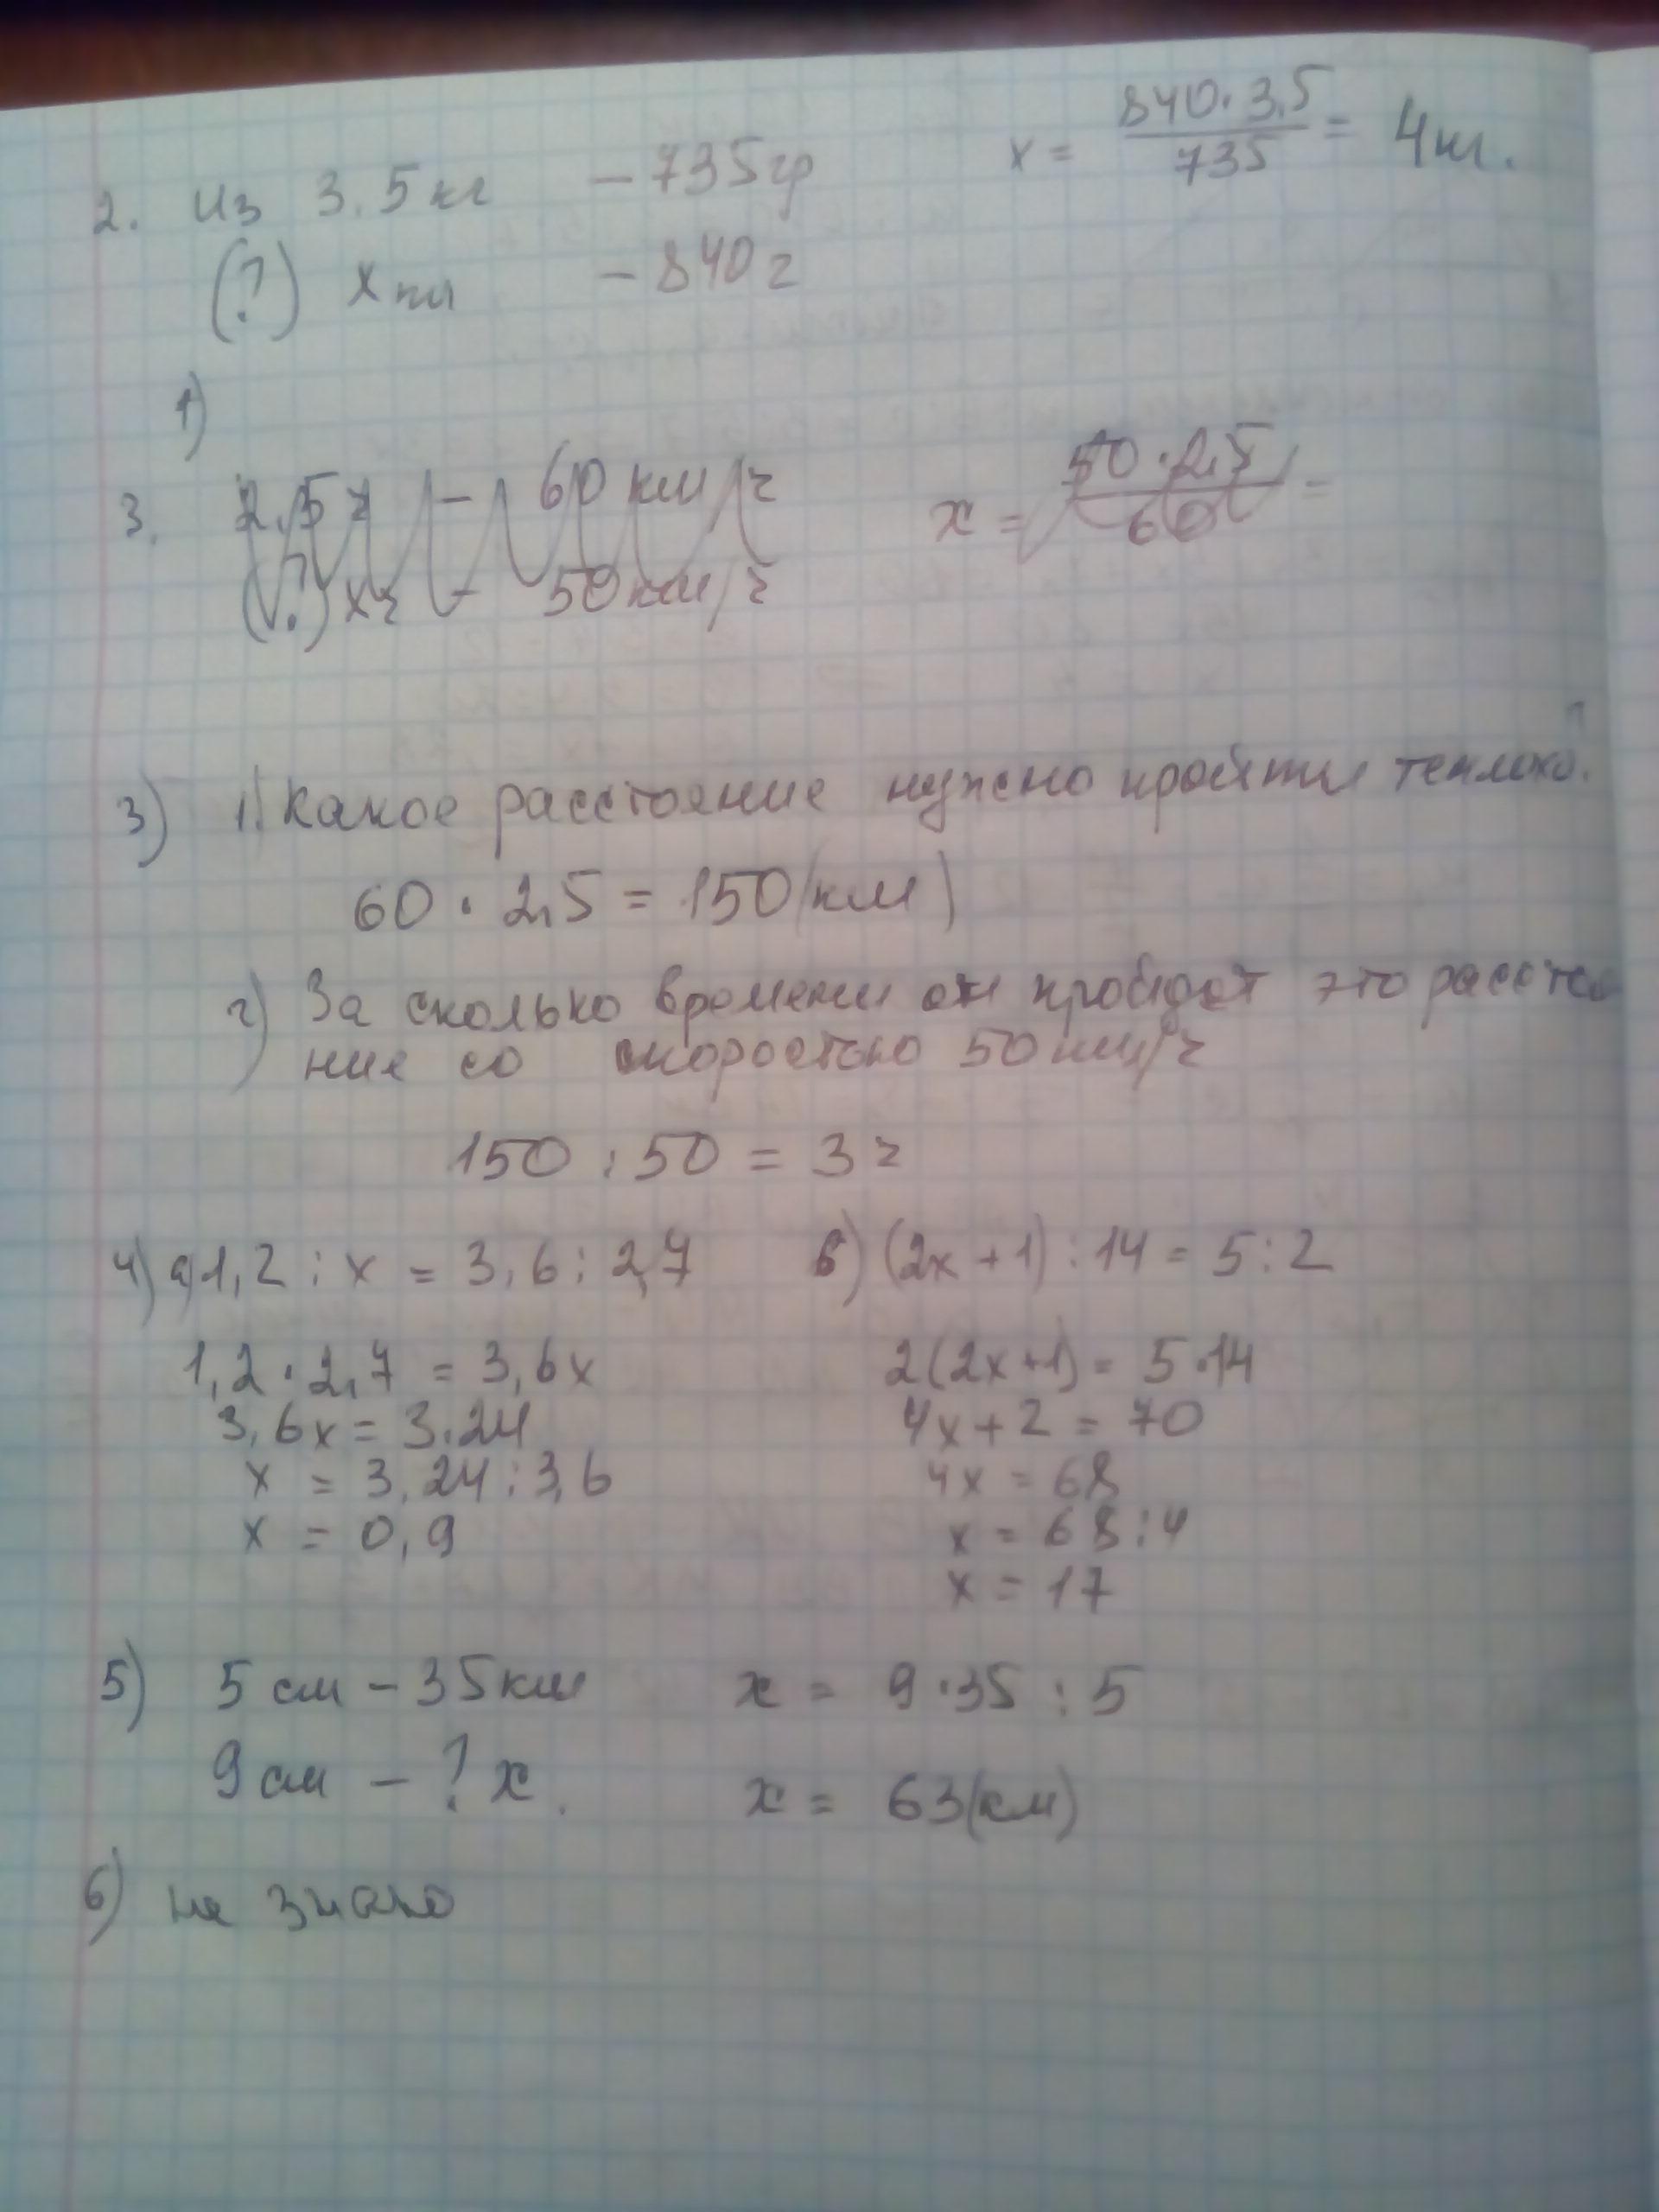 2. Из 3.5 кг – 735гр x = 840·3,5 / 735 = 4кг.
(?) x кг – 840г
1)
3. 2,5ч – 60 км/ч x = 50·2,5 / 60 =
(?) xч – 50км/ч
3) 1) Какое расстояние нужно пройти теплохо.
60 · 2,5 = 150(км)
2) За сколько времени он пройдёт это расстоя
ние со скоростью 50км/ч
150 : 50 = 3ч
4) а) 1,2 : x = 3,6 : 2,7 б) (2x + 1) : 14 = 5 : 2
1,2 · 2,7 = 3,6x 2(2x+1) = 5·14
3,6x = 3.24 4x + 2 = 70
x = 3,24 : 3,6 4x = 68
x = 0,9 x = 68 : 4
x = 17
5) 5 см – 35км x = 9·35 : 5
9 см – ? x. x = 63(км)
6) не знаю